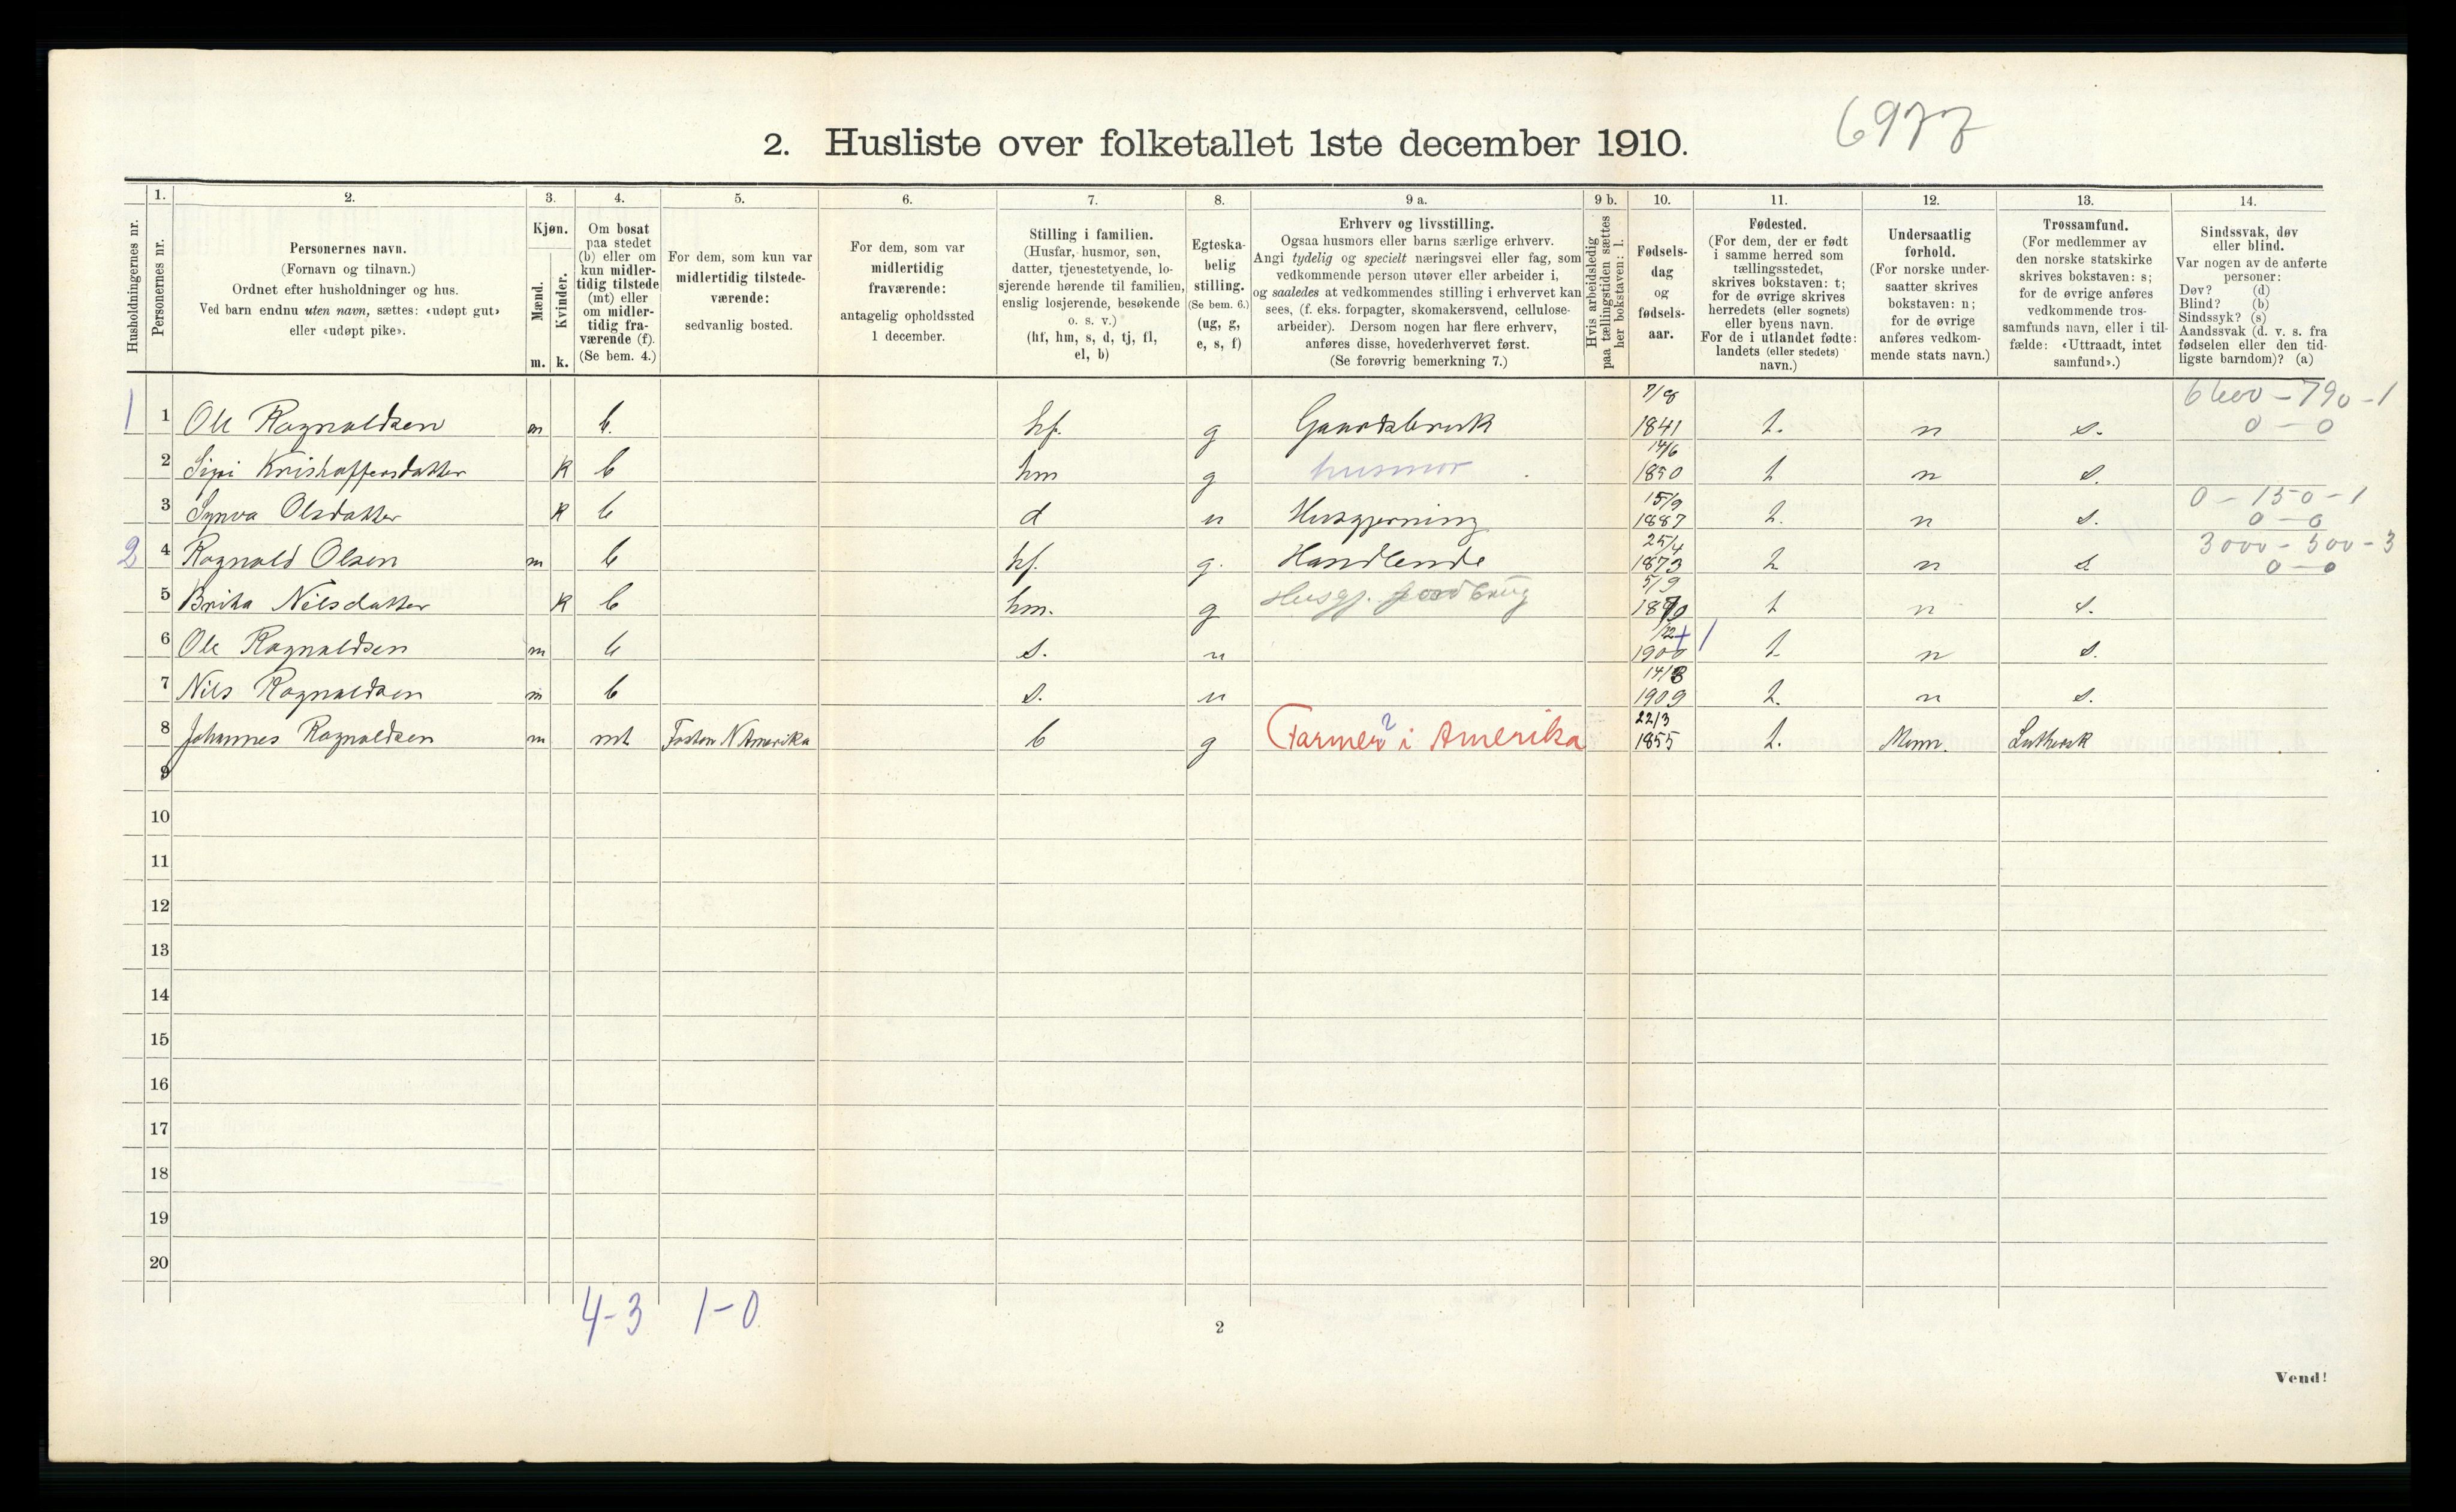 6977
2. Husliste over folketallet 1ste december 1910.
Husholdningernes nr.
1.
Personernes nr.
2.
Personernes navn.
(Fornavn og tilnavn.)
Ordnet efter husholdninger og hus.
Ved barn endnu uten navn, sættes: «udøpt gut»
eller «udøpt pike».
3.
Kjøn.
Mænd.
Kvinder.
m. k.
4.
Om bosat
paa stedet
(b) eller om
kun midler-
tidig tilstede
(mt) eller
om midler-
tidig fra-
værende (f).
(Se bem. 4.)
5.
For dem, som kun var
midlertidig tilstede-
værende:
sedvanlig bosted.
6.
For dem, som var
midlertidig
fraværende:
antagelig opholdssted
1 december.
7.
Stilling i familien.
(Husfar, husmor, søn,
datter, tjenestetyende, lo-
sjerende hørende til familien,
enslig losjerende, besøkende
o. s. v.)
(hf, hm, s, d, tj, fl,
el, b)
8.
Egteska-
belig
stilling.
(Se bem. 6.)
(ug, g,
e, s, f)
9 a.
Erhverv og livsstilling.
Ogsaa husmors eller barns særlige erhverv.
Angi tydelig og specielt næringsvei eller fag, som
vedkommende person utøver eller arbeider i,
og saaledes at vedkommendes stilling i erhvervet kan
sees, (f. eks. forpagter, skomakersvend, cellulose-
arbeider). Dersom nogen har flere erhverv,
anføres disse, hovederhvervet først.
(Se forøvrig bemerkning 7.)
9 b.
Hvis arbeidsledig
paa tællingstiden sættes
her bokstaven: l.
10.
Fødsels-
dag
og
fødsels-
aar.
11.
Fødested.
(For dem, der er født
i samme herred som
tællingsstedet,
skrives bokstaven: t;
for de øvrige skrives
herredets (eller sognets)
eller byens navn.
For de i utlandet fødte:
landets (eller stedets)
navn.)
12.
Undersaatlig
forhold.
(For norske under-
saatter skrives
bokstaven: n;
for de øvrige
anføres vedkom-
mende stats navn.)
13.
Trossamfund.
(For medlemmer av
den norske statskirke
skrives bokstaven: s;
for de øvrige anføres
vedkommende tros-
samfunds navn, eller i til-
fælde: «Uttraadt, intet
samfund».)
14.
Sindssvak, døv
eller blind.
Var nogen av de anførte
personer:
Døv? (d)
Blind? (b)
Sindssyk? (s)
Aandssvak (d. v. s. fra
fødselen eller den tid-
ligste barndom)? (a)
1 1 Ole Ragnaldsen m b. hf. g Gaardsbruk 7/8 1841 t. n s. 6600 - 790 - 1 0 - 0
2 Sigri Kristoffersdatter k b hm g husmor 14/6 1850 t n s.
3 Synva Olsdatter k b d u Husgjerning 15/9 1887 t. n s. 0 - 150 - 1 0 - 0
2 4 Ragnald Olsen m b hf. g. Handlende 25/4 1873 t n s 3000 - 500 - 3 0 - 0
5 Brita Nilsdatter k b hm. g Husgj. 5/9 1870 t n s.
6 Ole Ragnaldsen m b s. u 1900 1 t n s.
7 Nils Ragnaldsen m b s. u 14/8 1909 t. n s.
8 Johannes Ragnaldsen m mt Foston N Amerika b g Farmer i Amerika 2 22/3 1855 t. Minn. Luthersk
9
10
11
12
13
14
15
16
17
18
19
20
4-3 1-0
2
Vend!